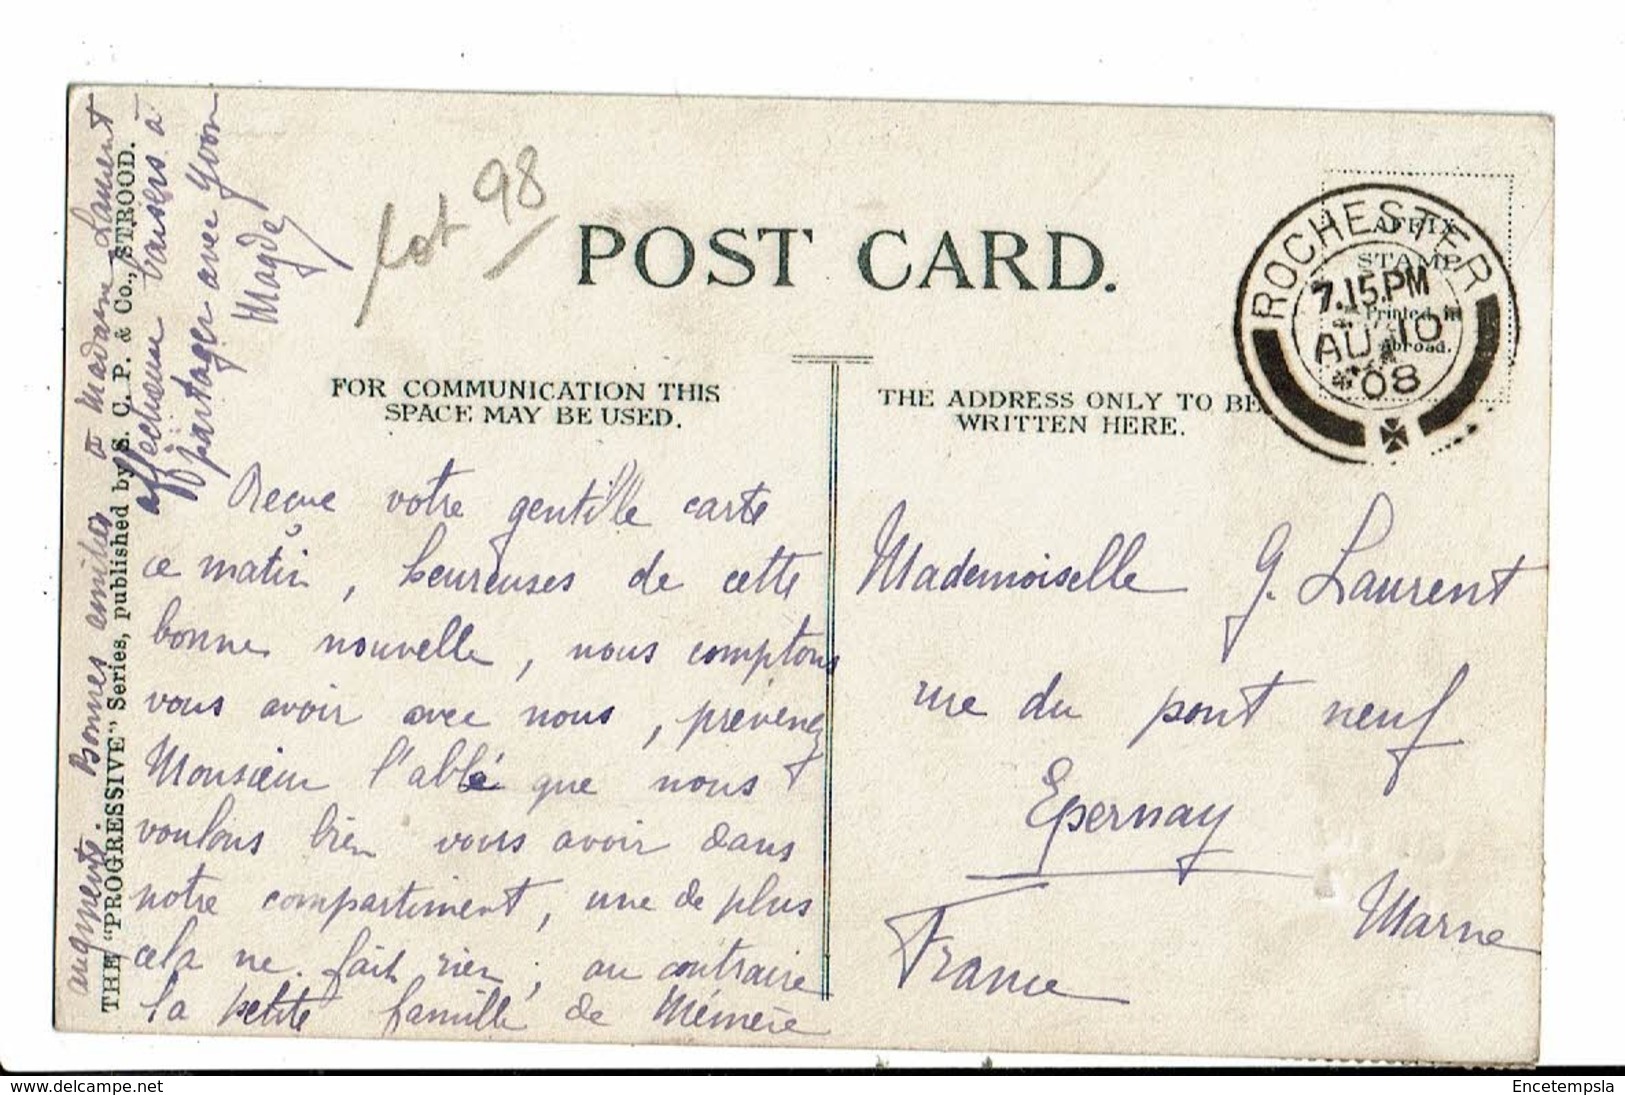 lot 98
POST CARD.
ROCHESTER
7.15.PM
AU 10
08
AFFIX
STAMP
Printed in
Abroad.
FOR COMMUNICATION THIS
SPACE MAY BE USED.
THE ADDRESS ONLY TO BE
WRITTEN HERE.
Recue votre gentille carte
ce matin, heureuses de cette
bonne nouvelle, nous comptons
vous avoir avec nous, prévenez
Monsieur l'abbé que nous
voulons bien vous avoir dans
notre compartiment, une de plus
cela ne fait rien, au contraire
la petite famille de Mémère
augmente. Bonnes amitiés à Madame Laurent
affectueux baisers à
partager avec Yvon
Magde
Mademoiselle G. Laurent
rue du pont neuf
Epernay
Marne
France
THE "PROGRESSIVE" Series, published by S. C. P. & Co., STROOD.
www.delcampe.net
Encetempsla